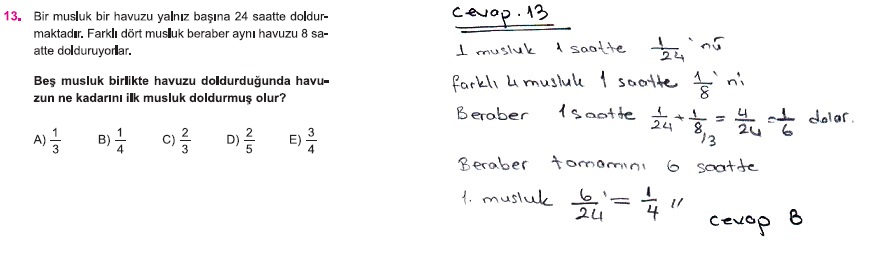 13. Bir musluk bir havuzu yalnız başına 24 saatte doldur-
maktadır. Farklı dört musluk beraber aynı havuzu 8 sa-
atte dolduruyorlar.
Beş musluk birlikte havuzu doldurduğunda havu-
zun ne kadarını ilk musluk doldurmuş olur?
A) 1/3 B) 1/4 C) 2/3 D) 2/5 E) 3/4
Cevap. 13
1 musluk 1 saatte 1/24 'nü
farklı 4 musluk 1 saatte 1/8 'ni
Beraber 1 saatte 1/24 + 1/8 /3 = 4/24 = 1/6 dolar.
Beraber tamamını 6 saatte
1. musluk 6/24 ' = 1/4 //
cevap B